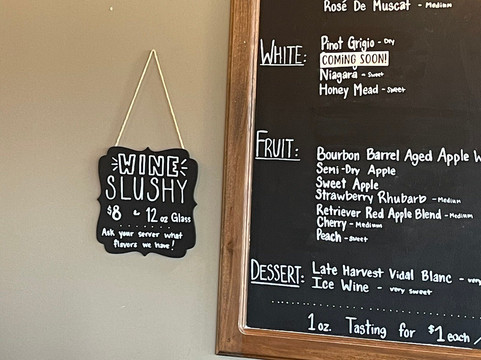 Rosé De Muscat - Medium
WHITE:
Pinot Grigio - Dry
COMING SOON!
Niagara - Sweet
Honey Mead - Sweet
FRUIT:
Bourbon Barrel Aged Apple W
Semi-Dry Apple
Sweet Apple
Strawberry Rhubarb - Medium
Retriever Red Apple Blend - Medium
Cherry - Medium
Peach - Sweet
DESSERT:
Late Harvest Vidal Blanc - very
Ice Wine - very sweet
1oz. Tasting for $1 each /
WINE
SLUSHY
$8 ~ 12 oz Glass
Ask your server what
flavors we have!